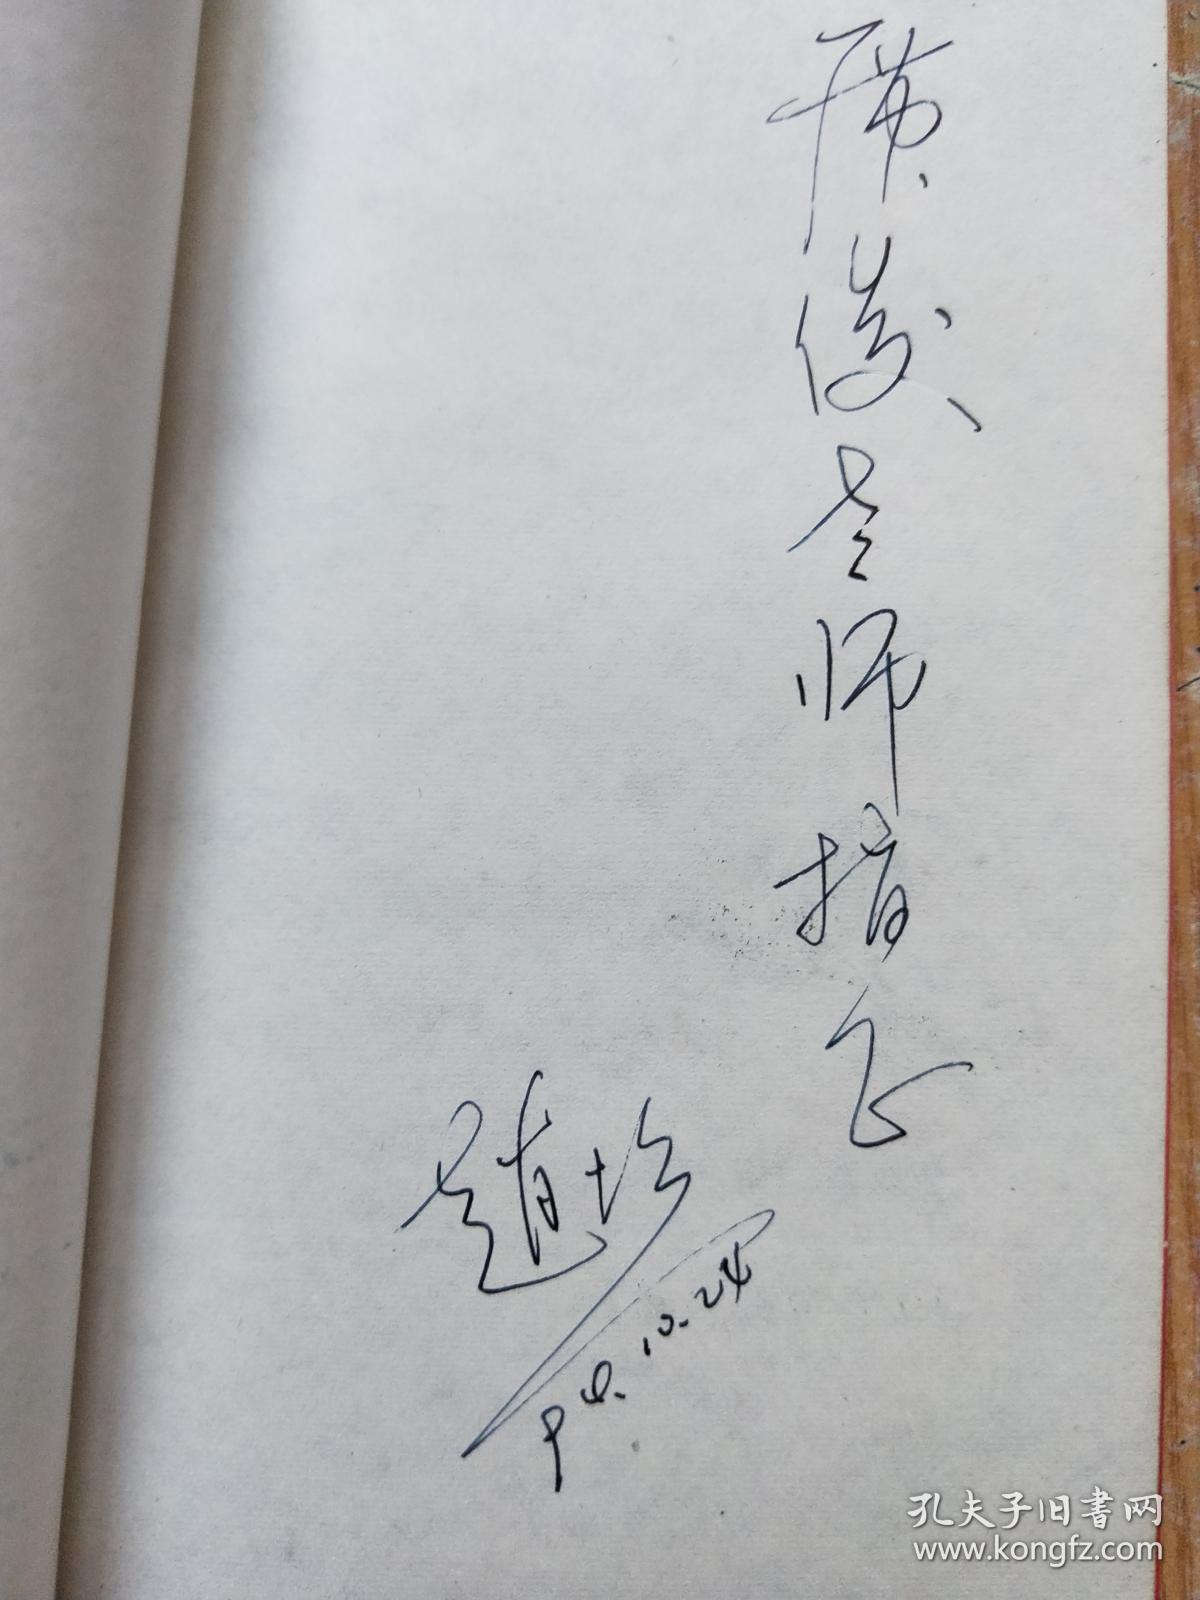 俊老师指正
赵
10.24
孔夫子旧書网
www.kongfz.com